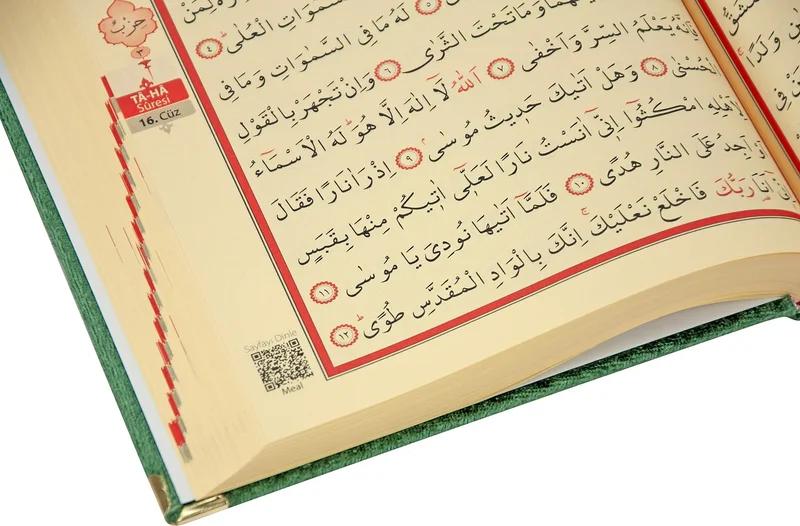 حِزْبْ
٣
TÂ-HÂ
Sûresi
16. Cüz
السَّمٰوَاتِ الْعُلٰىۜ ﴿٤﴾
لَهُ مَا فِي السَّمٰوَاتِ وَمَا فِي
وَمَا تَحْتَ الثَّرٰى ﴿٦﴾ وَاِنْ تَجْهَرْ بِالْقَوْلِ
فَاِنَّهُ يَعْلَمُ السِّرَّ وَاَخْفٰى ﴿٧﴾ اَللّٰهُ لَٓا اِلٰهَ اِلَّا هُوَۜ لَهُ الْاَسْمَٓاءُ
الْحُسْنٰى ﴿٨﴾ وَهَلْ اَتٰيكَ حَد۪يثُ مُوسٰىۢ ﴿٩﴾ اِذْ رَاٰ نَارًا فَقَالَ
لِاَهْلِهِ امْكُثُٓوا اِنّ۪ٓي اٰنَسْتُ نَارًا لَعَلّ۪ٓي اٰت۪يكُمْ مِنْهَا بِقَبَسٍ
اَوْ اَجِدُ عَلَى النَّارِ هُدًى ﴿١٠﴾ فَلَمَّٓا اَتٰيهَا نُودِيَ يَا مُوسٰىۜ ﴿١١﴾
اِنّ۪ٓي اَنَا۬ رَبُّكَ فَاخْلَعْ نَعْلَيْكَۚ اِنَّكَ بِالْوَادِ الْمُقَدَّسِ طُوًىۜ ﴿١٢﴾
Sayfayı Dinle
Meal